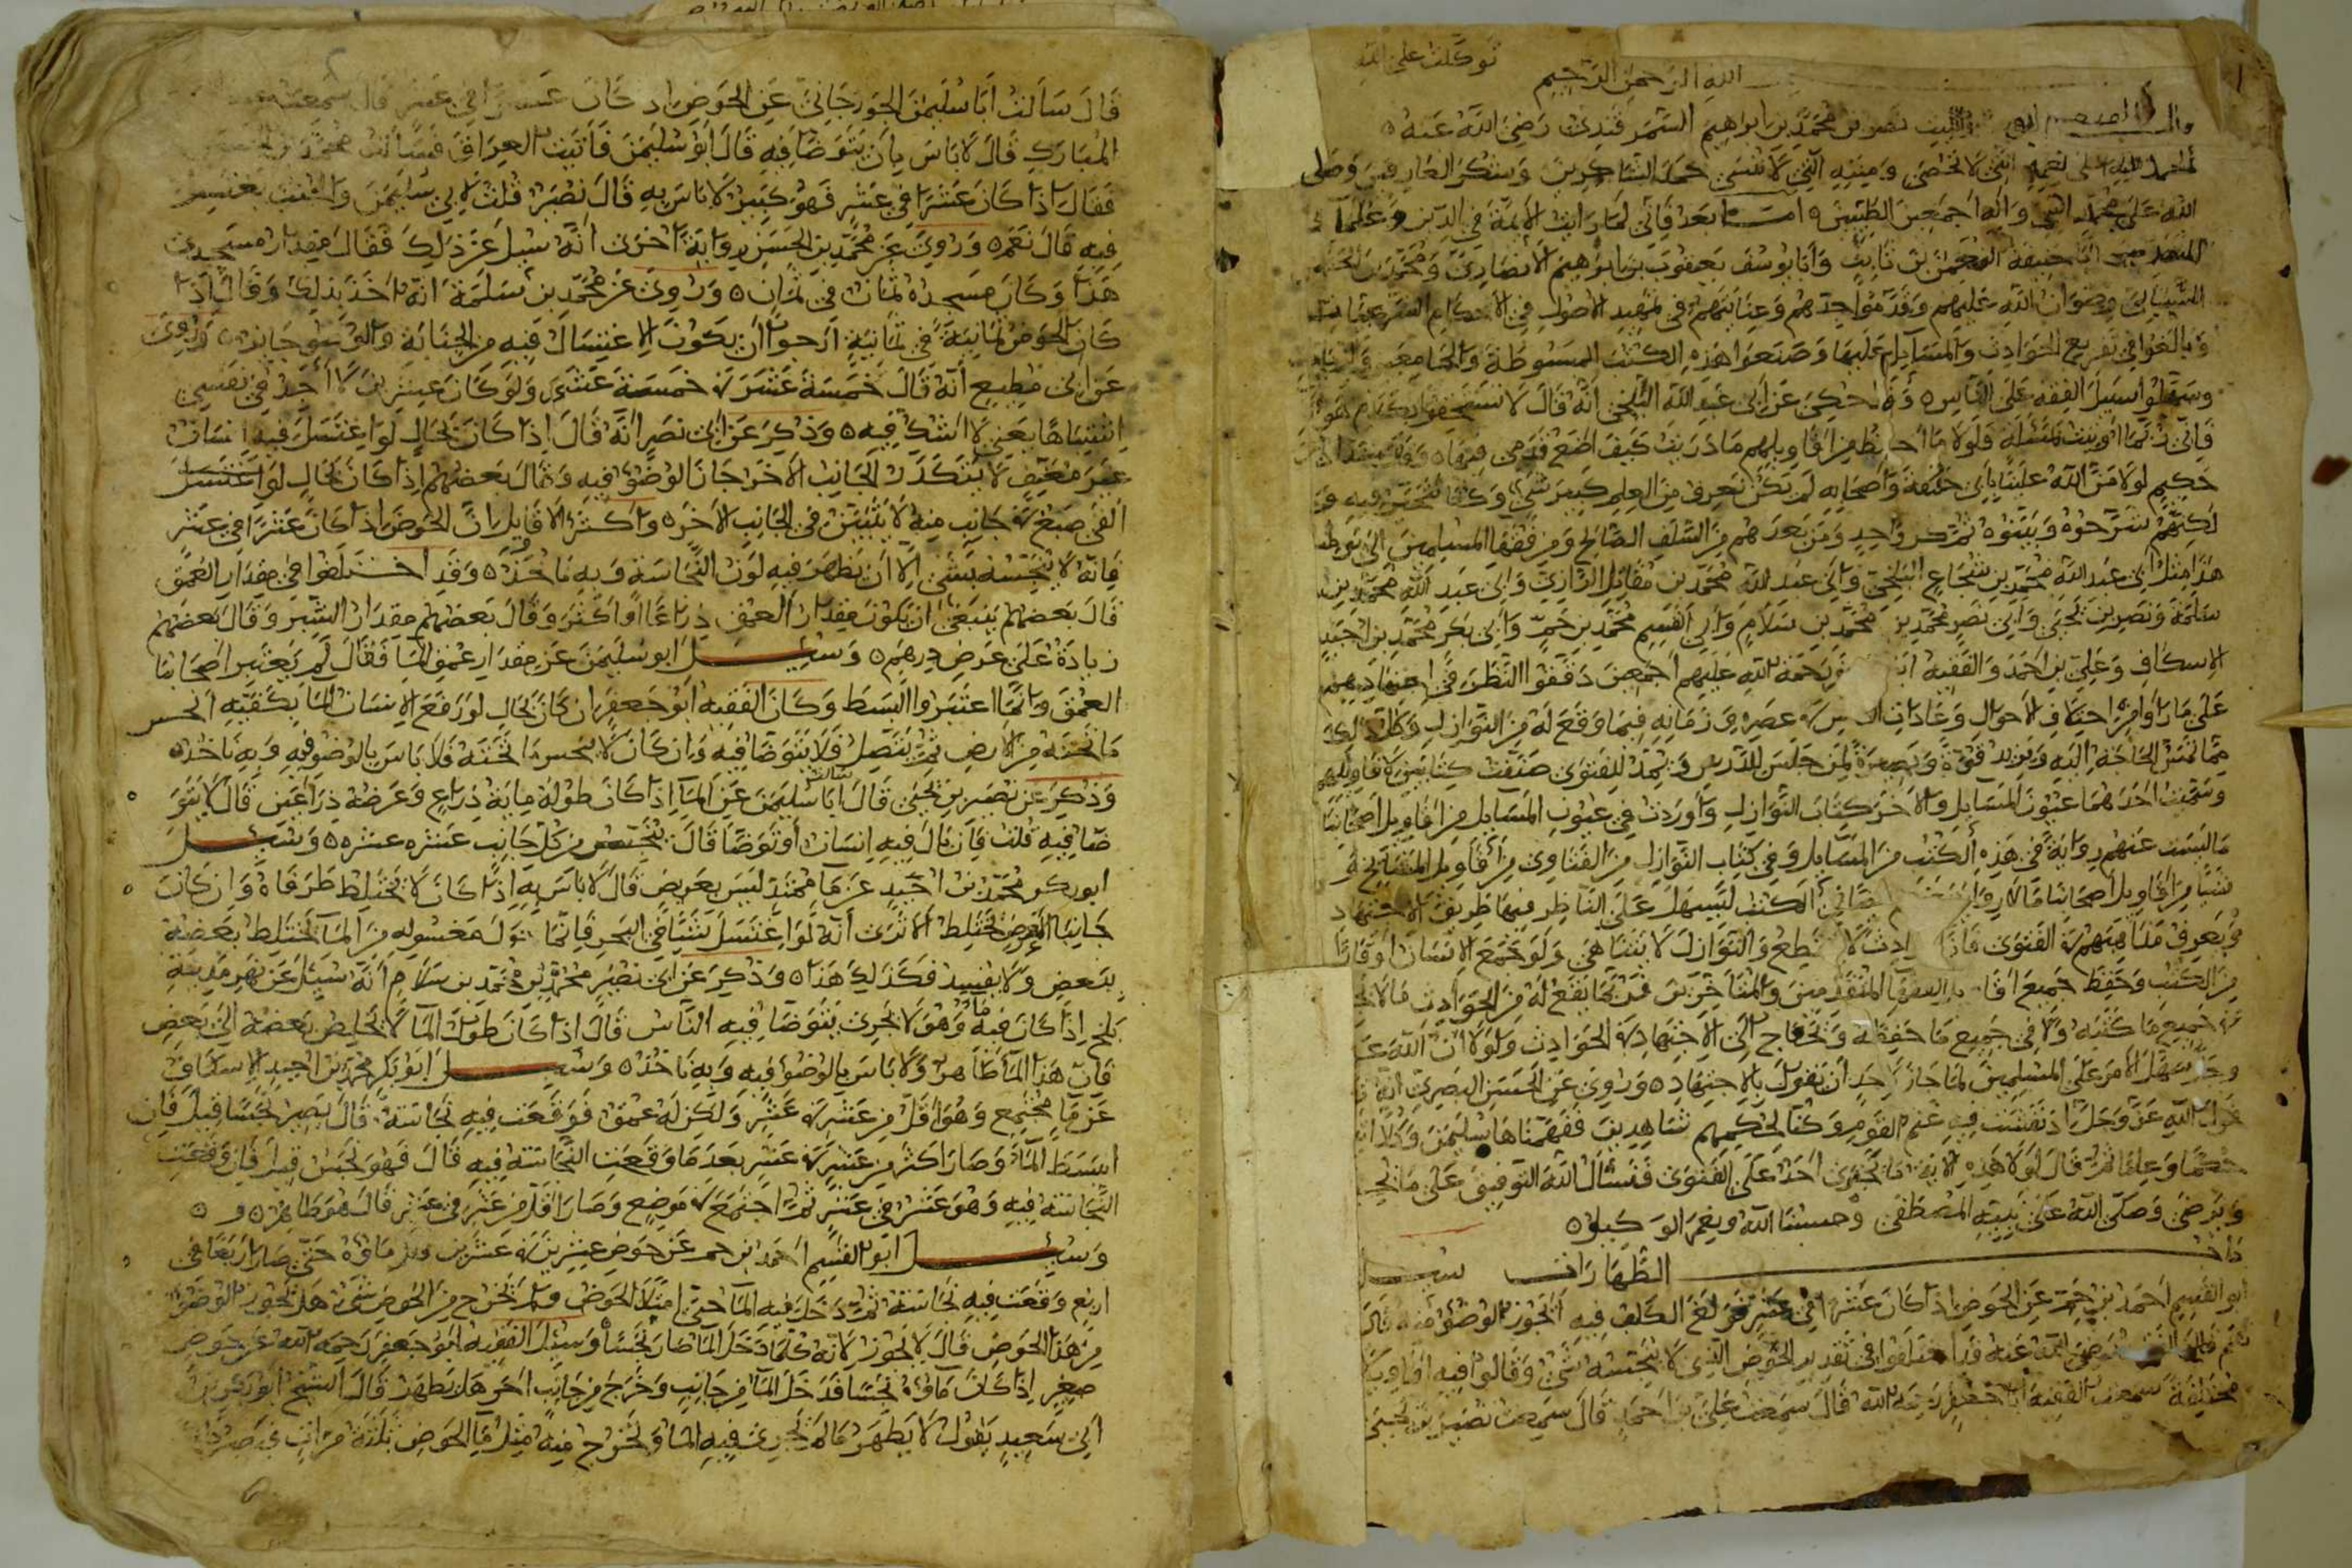 توكلت على الله
الله الرحمن الرحيم
الليث نصر بن محمد بن ابراهيم السمرقندي رضي الله عنه
الحمد لله على نعمه التي لا تحصى ومننه التي لا تنسى حمد الشاكرين وشكر العارفين وصلى
الله على محمد النبي واله اجمعين الطيبين اما بعد فاني لما رايت الأئمة في الدين وعلما
المتقدمين ابا حنيفة النعمن بن ثابت وابا يوسف يعقوب بن ابرهيم الأنصاري ومحمد بن الحسن
الشيباني رضوان الله عليهم وقد وعنايتهم في تمهيد الأصول في الاحكام الشرعيات
وبالغوا في تفريع الحوادث والمسايل عليها وصنعوا هذه الكتب المبسوطة والجامعة
وسهلوا سبيل الفقه على الناس وقد حكي عن ابي عبد الله البلخي انه قال لا نستخف بكلام هؤلا
فاني ربما اوتيت بمسئلة فلولا ما احفظ من اقاويلهم ما دريت كيف اضع قدمي فيها
حكيم لولا من الله علينا بابي حنيفة واصحابه لم نكن نعرف من العلم كبير شي وكنا نتحير فيه
لكنهم شرحوه وبينوه ثم كم واحد ومن بعدهم من السلف الصالح ومن فقها المسلمين الى
هذا مثل ابي عبد الله محمد بن شجاع البلخي وابي عبد الله محمد بن مقاتل الرازي وابي عبد الله محمد بن
سلمة ونصير بن يحيى وابي نصر محمد بن محمد بن سلام وابي القسم وابي بكر محمد بن احمد
الاسكاف وعلي بن احمد والفقيه ابي رحمة الله عليهم اجمعين دققوا النظر في اجتهادهم
على ما راوا من اختلاف الاحوال وعادات الناس في عصره وزمانه فيما وقع له من النوازل وكل ذلك
مما تمس الحاجة اليه ويزيد قوة وبصيرة لمن جلس للدرس وتمد للفتوى صنفت كتابين في اقاويلهم
وسميت احدهما عيون المسايل والاخر كتاب النوازل واوردت في عيون المسايل من اقاويل اصحابنا
ما ليست عنهم رواية في هذه الكتب من المسايل وفي كتاب النوازل من الفتاوى من اقاويل المشايخ
شيا من اقاويل اصحابنا ما لا رواية الكتب ليسهل على الناظر فيها طريق الاجتهاد
ويعرف مذاهبهم في الفتوى تنقطع والنوازل لا تتناهى ولو جمع الانسان اوقارا
من الكتب وحفظ جميع المتقدمين والمتاخرين فربما يقع له من الحوادث ما لا يجد
في جميع ما كتبه ولا في جميع ما حفظه ويحتاج الى الاجتهاد في الحوادث ولولا ان الله عز
وجل سهل الأمر على المسلمين لما جاز لاحد ان يقول بالاجتهاد وروي عن الحسن البصري انه
الله عز وجل اذ نفشت فيه غنم القوم وكنا لحكمهم شاهدين ففهمناها سليمن وكلا اتينا
حكما وعلما ثم قال لولا هذه الاية ما اجترى احد على الفتوى فنسال الله التوفيق على ما يحب
ويرضى وصلى الله على نبيه المصطفى وحسبنا الله ونعم الوكيل
الطهارات سئل
ابو القسم احمد عن الحوض اذا كان عشرا في عشر فولغ الكلب فيه ايجوز الوضو منه قال
نعم قال الفقيه رضي الله عنه قد اختلفوا في تقدير الحوض الذي لا ينجسه شي وقالوا فيه اقاويل
مختلفة سمعت الفقيه ابا جعفر رحمه الله قال سمعت علي بن احمد قال سمعت نصير بن يحيى
قال سالت ابا سليمن الجوزجاني عن الحوض اذ كان عشرا في عشر قال سمعت
المبارك قال لا باس بان يتوضا فيه قال ابو سليمن فاتيت العراق فسالت محمد بن الحسن
فقال اذا كان عشرا في عشر فهو كبير لا باس به قال نصير قلت لابي سليمن
فيه قال نعم وروي عن محمد بن الحسن رواية اخرى انه سيل عن ذلك فقال مقدار مسجدي
هذا وكان مسجده ثمان في ثمان وروي عن محمد بن سلمة انه اخذ بذلك وقال اذا
كان الحوض ثمانية في ثمانية ارجوا ان يكون الاغتسال فيه من الجنابة والوضو جايز وروي
عن ابي مطيع انه قال خمسة عشر في خمسة عشر ولو كان عشرين لا اجد في نفسي
يعني لا اشك فيه وذكر عن ابي نصر انه قال اذا كان بحال لو اغتسل فيه انسان
غير معنف لا يتكدر الجانب الاخر جاز الوضو فيه وقال بعضهم اذا كان بحال لو اغتسل
القي صبغ في جانب منه لا يتبين في الجانب الاخر واكثر الاقاويل ان الحوض اذا كان عشرا في عشر
فانه لا ينجسه شي الا ان يظهر فيه لون النجاسة وبه ناخذ وقد اختلفوا في مقدار العمق
قال بعضهم ينبغي ان يكون مقدار العمق ذراعا او اكثر وقال بعضهم مقدار الشبر وقال بعضهم
زيادة على عرض درهم وسئل ابو سليمن عن مقدار عمق الما فقال لم يعتبر اصحابنا
العمق وانما اعتبروا البسط وكان الفقيه ابو جعفر ان كان بحال لو رفع الانسان الما بكفيه انحسر
ما تحته من الارض ثم يتصل فلا يتوضا فيه وان كان لا ينحسر ما تحته فلا باس بالوضو فيه وبه ناخذ
وذكر عن نصير بن يحيى قال سالت ابا سليمن عن الما اذا كان طوله ماية ذراع وعرضه ذراعين قال لا يتو
ضا فيه قلت فان بال فيه انسان او توضا قال يتنجس من كل جانب عشرة عشرة وسئل
ابو بكر محمد بن احمد عن ما ممتد ليس بعريض قال لا باس به اذا كان لا يختلط طرفاه وان كانت
جانبا العرض تختلط الا ترى انه لو اغتسل شيا في البحر فانما من الما يختلط بعضه
ببعض ولا يفسد فكذلك هذا وذكر عن ابي نصر محمد بن محمد بن سلام انه سيل عن نهر مدينة
بلخ اذا كان فيه ما وهو لا يجري يتوضا فيه الناس قال اذا كان طول الما لا يخلص بعضه الى بعض
فان هذا الما طاهر ولا باس بالوضو فيه وبه ناخذ وسئل ابو بكر محمد بن احمد الاسكاف
عن ما مجتمع وهو اقل من عشر في عشر ولكن له عمق فوقعت فيه نجاسة قال يصير نجسا قيل فان
انبسط الما وصار اكثر من عشر في عشر بعد ما وقعت النجاسة فيه قال فهو نجس قيل فان وقعت
النجاسة فيه وهو عشر في عشر ثم اجتمع في موضع وصار اقل من عشر في عشر قال هو طاهر
وسئل ابو القسم احمد عن حوض عشرين في عشرين قل ماؤه حتى صار اربعا في
اربع وقعت فيه نجاسة ثم دخل فيه الما حتى امتلا الحوض ولم يخرج من الحوض شي هل يجوز الوضو
من هذا الحوض قال لا يجوز لانه كلما دخل الما صار نجسا وسئل الفقيه ابو جعفر رحمه الله عن حوض
صغير اذا كان ماؤه نجسا فدخل الما من جانب وخرج من جانب اخر هل يطهر قال الشيخ ابو بكر بن
ابي سعيد يقول لا يطهر ما لم يجري فيه الما ويخرج منه مثل ما في الحوض ثلثة مرات